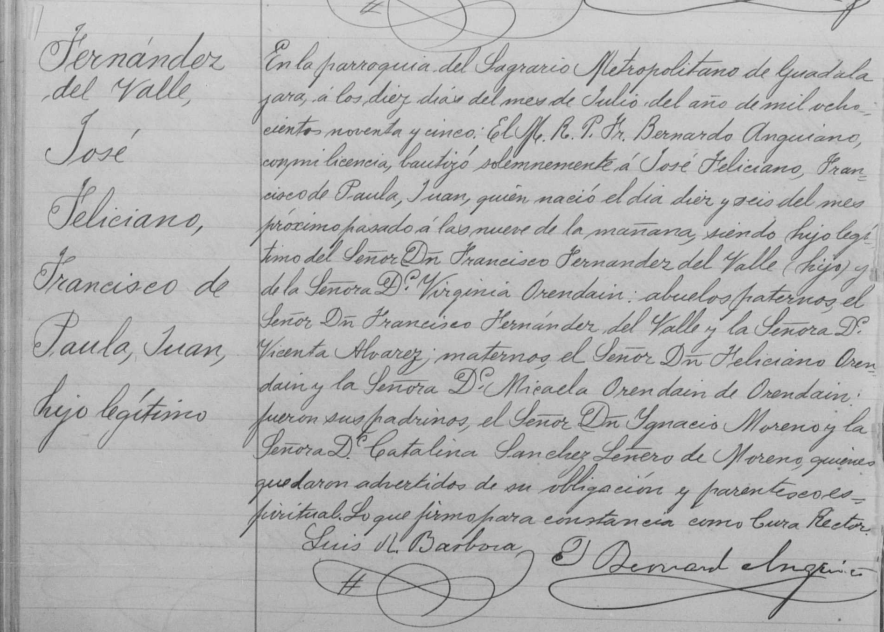 Fernández
del Valle,
José
Feliciano,
Francisco de
Paula, Juan,
hijo legítimo
En la parroquia del Sagrario Metropolitano de Guadala
jara, á los diez dias del mes de Julio del año de mil ocho-
cientos noventa y cinco: El M. R. P. Fr. Bernardo Anguiano,
con mi licencia, bautizó solemnemente á José Feliciano, Fran=
cisco de Paula, Juan, quién nació el dia diez y seis del mes
próximo pasado á las nueve de la mañana, siendo hijo legí-
timo del Señor Dn Francisco Fernandez del Valle (hijo) y
de la Señora Dª Virginia Orendain: abuelos paternos, el
Señor Dn Francisco Fernández del Valle y la Señora Dª
Vicenta Alvarez; maternos, el Señor Dn Feliciano Oren-
dain y la Señora Dª Micaela Orendain de Orendain:
fueron sus padrinos, el Señor Dn Ygnacio Moreno y la
Señora Dª Catalina Sanchez Leñero de Moreno, quienes
quedaron advertidos de su obligación y parentesco es=
piritual. Lo que firmo para constancia como Cura Rector.
Luis R. Barbosa
Bernard